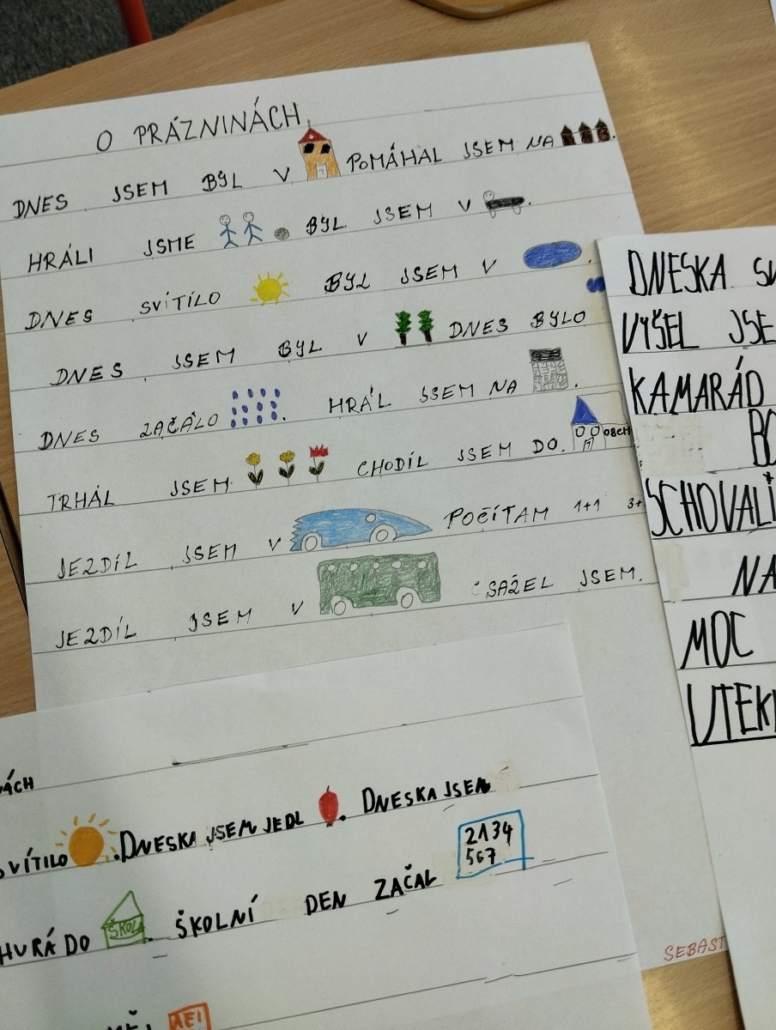 O PRÁZNINÁCH
DNES JSEM BYL V POMÁHAL JSEM NA .
HRÁLI JSME BYL JSEM V .
DNES SVÍTILO BYL JSEM V .
DNES JSEM BYL V DNES BYLO
DNES ZAČÁLO . HRÁL JSEM NA .
OBCH
TRHÁL JSEM CHODÍL JSEM DO.
JEZDÍL JSEM V POČÍTAM 1+1 3+
JEZDÍL JSEM V SÁZEL JSEM.
SEBAST
DNESKA SV
VYŠEL JSE
KAMARÁD
BO
SCHOVALI
NA
MOC
UTEK
ÁCH
SVÍTILO . DNESKA JSEM JEDL . DNESKA JSEM
2134
567
HURÁ DO ŠKOLA . ŠKOLNÍ DEN ZAČAL
AEI